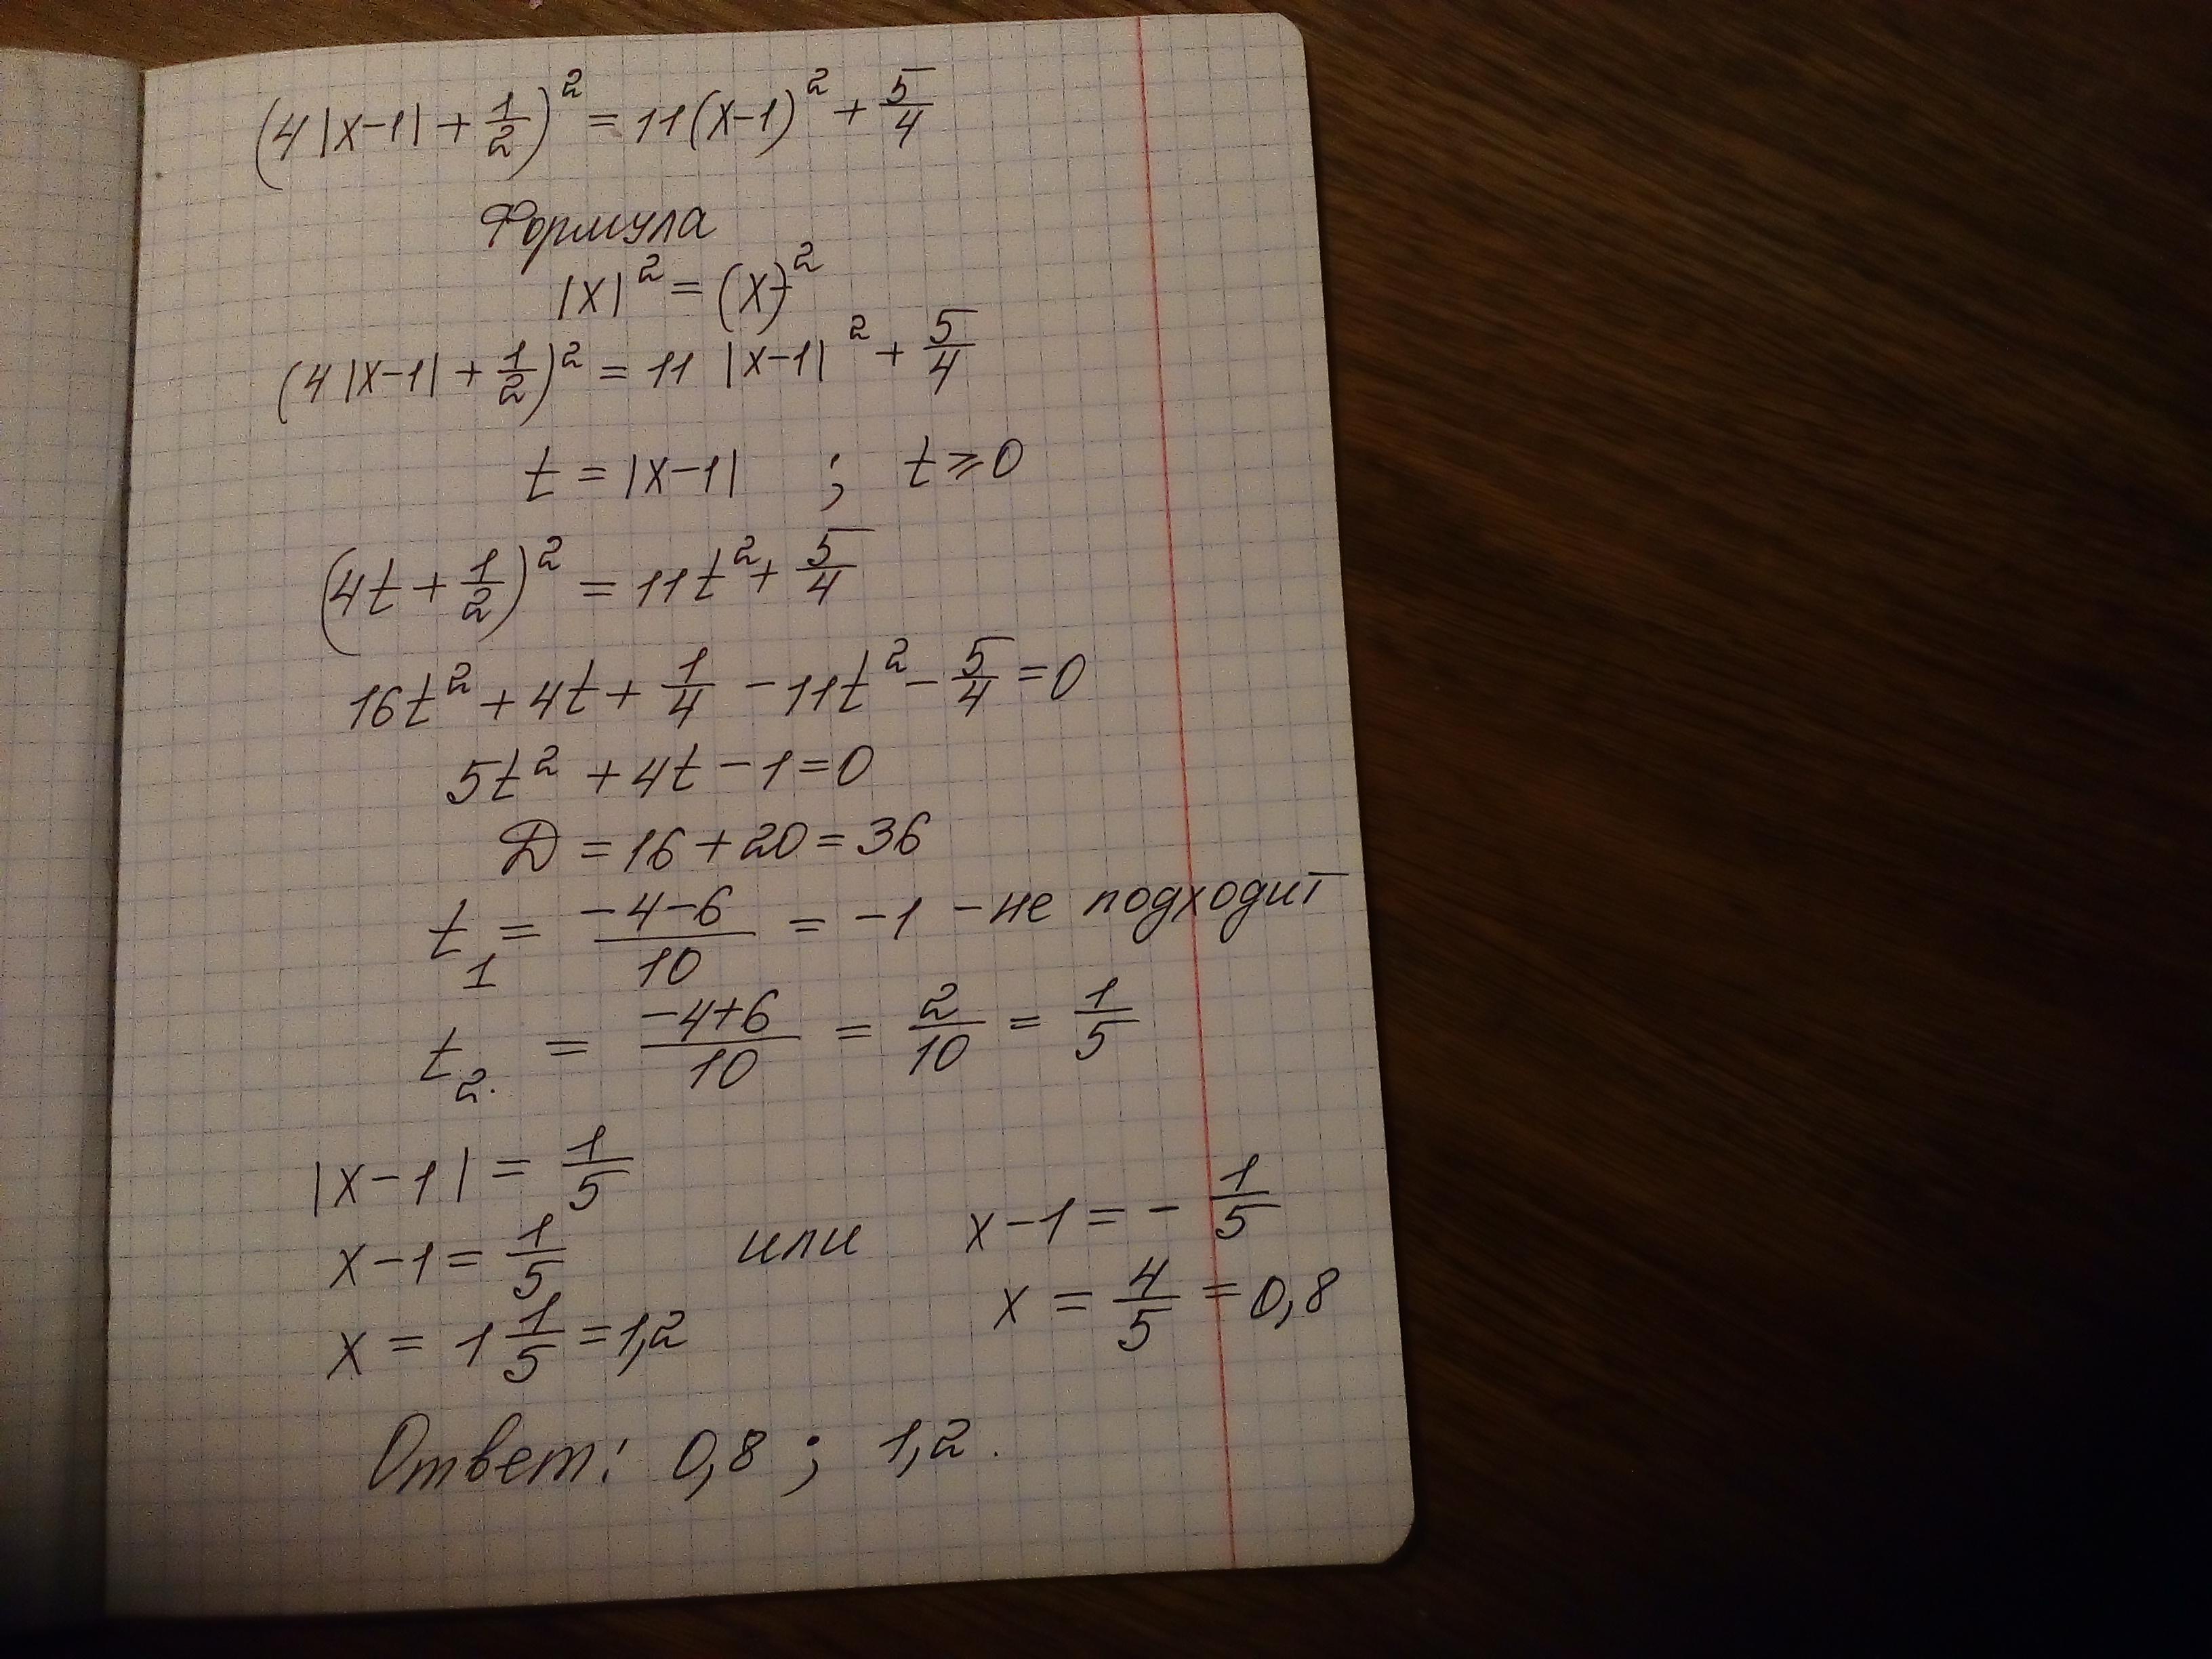 (4|x-1| + 1/2)² = 11(x-1)² + 5/4
Формула
|x|² = (x)²
(4|x-1| + 1/2)² = 11 |x-1|² + 5/4
t = |x-1| ; t ⩾ 0
(4t + 1/2)² = 11t² + 5/4
16t² + 4t + 1/4 - 11t² - 5/4 = 0
5t² + 4t - 1 = 0
Д = 16 + 20 = 36
t₁ = (-4-6)/10 = -1 - не подходит
t₂. = (-4+6)/10 = 2/10 = 1/5
|x-1| = 1/5
x-1 = 1/5 или x-1 = - 1/5
x = 1 1/5 = 1,2 x = 4/5 = 0,8
Ответ: 0,8 ; 1,2.